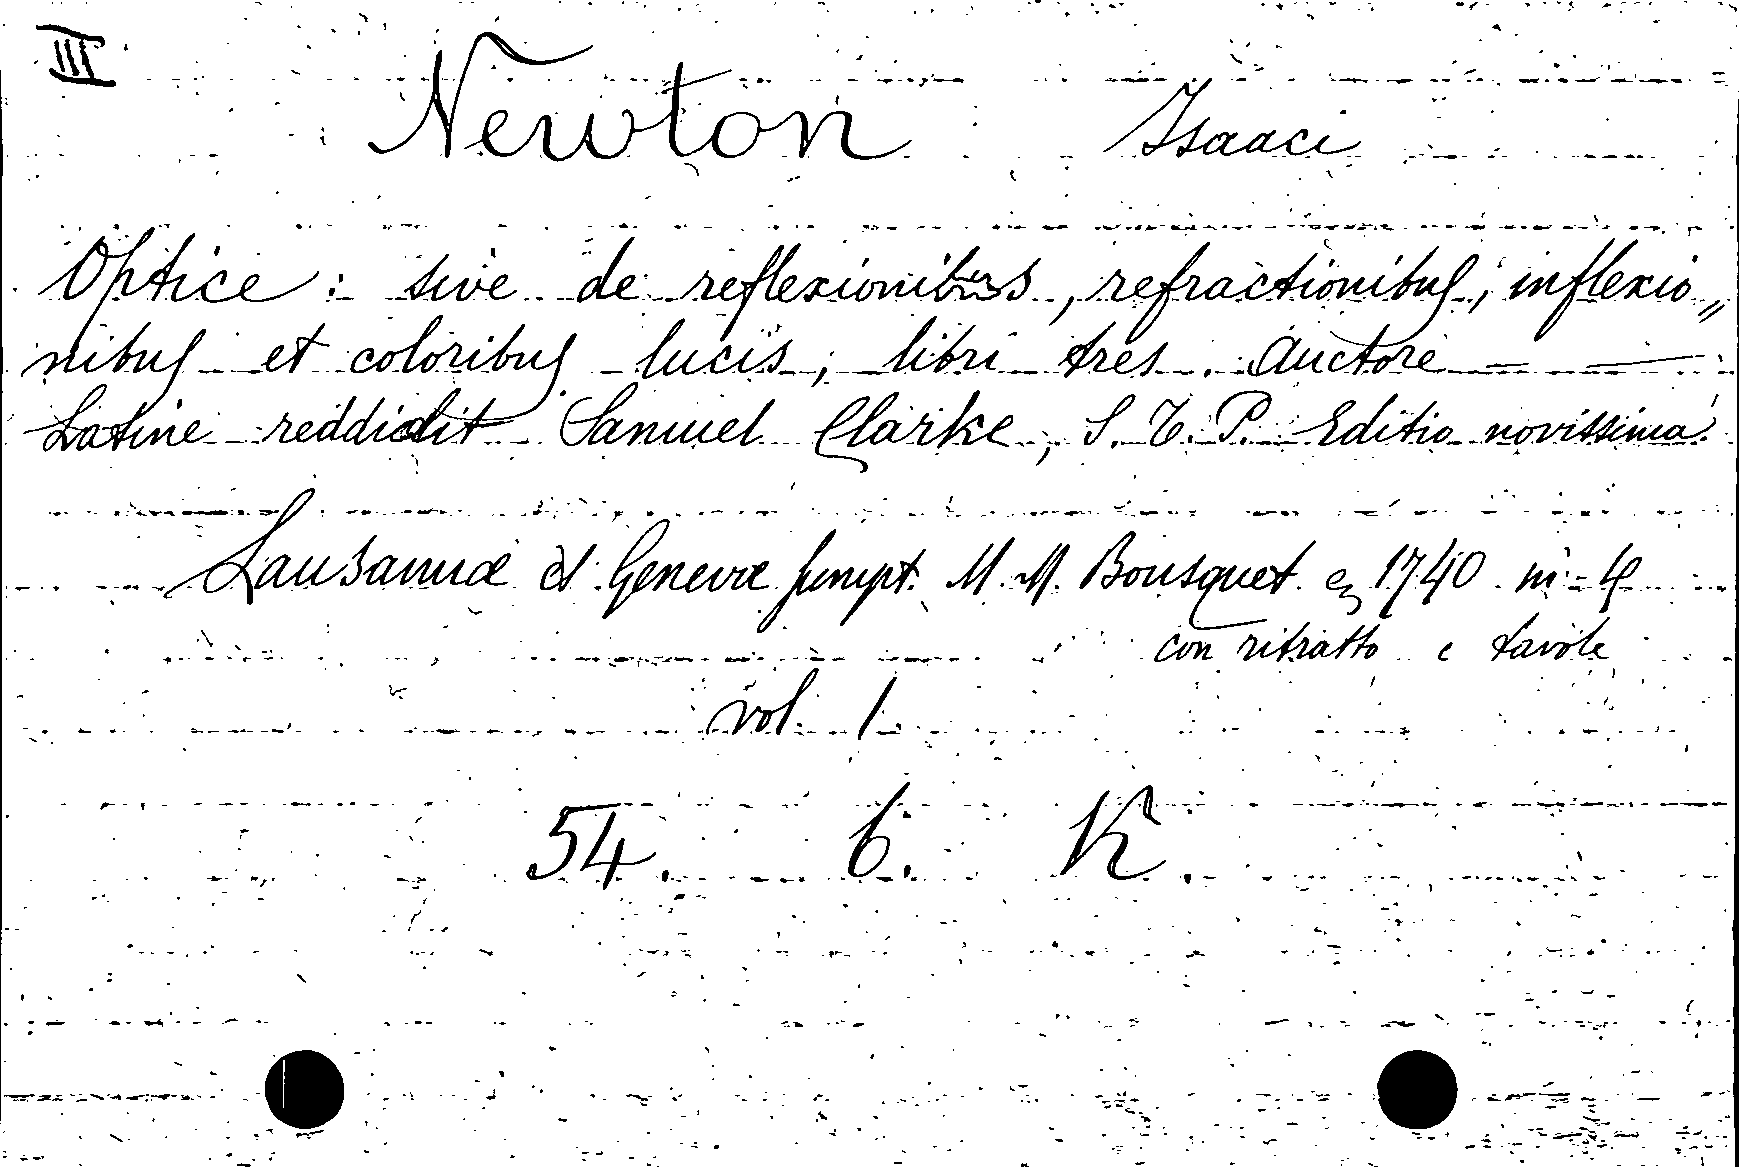 III
Newton Isaaci
Optice : sive de reflexionibus, refractionibus, inflexio„
nibus et coloribus lucis, libri tres. Auctore — —
Latine reddidit Samuel Clarke, S. T. P. Editio novissima.
Lausannæ et Genevæ sumpt. M. M. Bousquet 1740 in-4º
con ritratto e tavole
vol. 1.
54. 6. K.